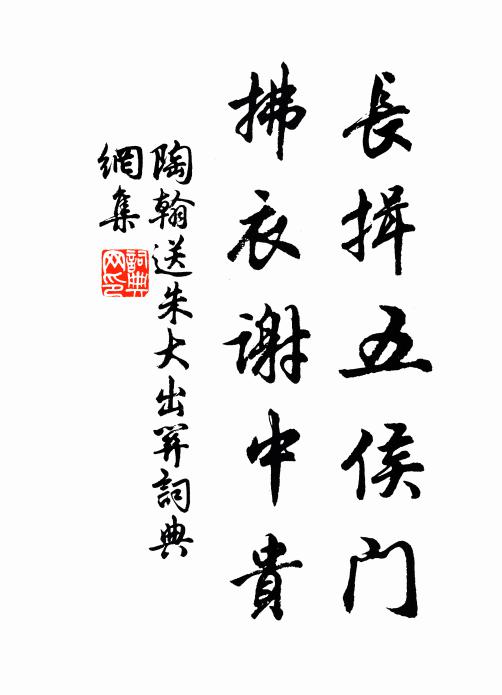 長揖五侯門
拂衣謝中貴
陶翰送朱大出關詞典
網集
詞典網印